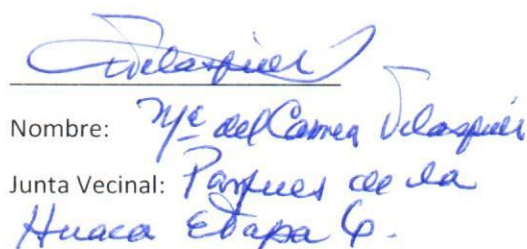 Velasquez
Nombre: Mª del Carmen Velasquez
Junta Vecinal: Parques de la
Huaca Etapa 6.